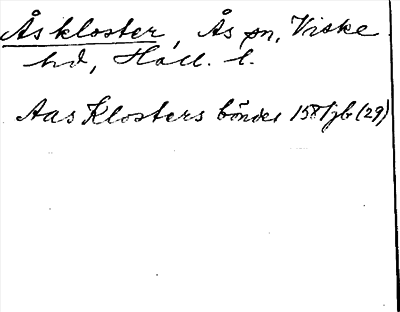 Ås kloster, Ås sn, Viske
hd, Hall. l.
Aas Klosters bönder 158/jb (29)